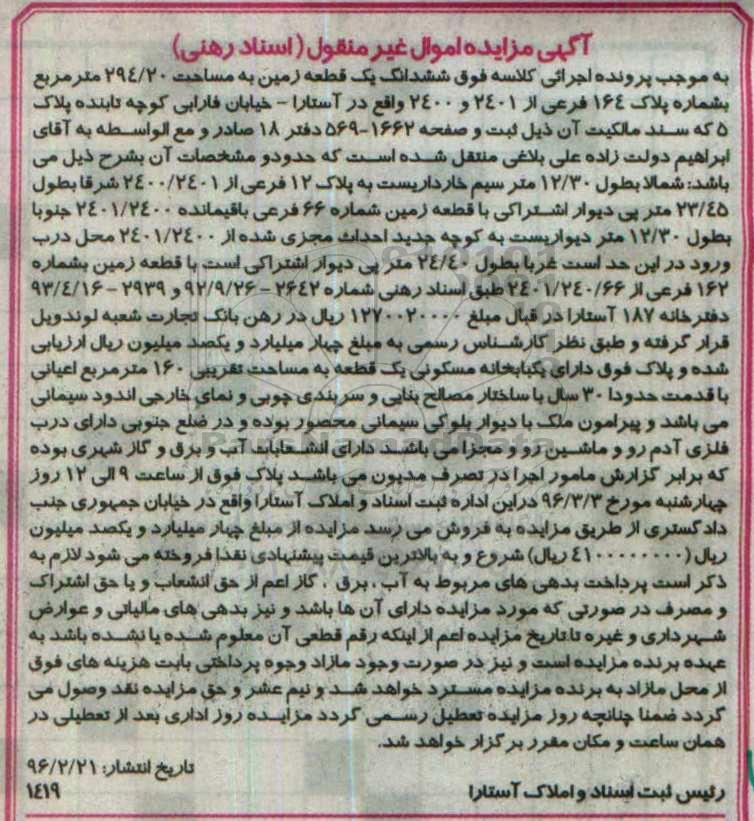 آگهی مزایده اموال غیر منقول (اسناد رهنی)
به موجب پرونده اجرائی کلاسه فوق ششدانگ یک قطعه زمین به مساحت ۲۹٤/۲۰ متر مربع
بشماره پلاک ۱٦٤ فرعی از ۲٤۰۱ و ۲٤۰۰ واقع در آستارا - خیابان فارابی کوچه تابنده پلاک
۵ که سند مالکیت آن ذیل ثبت و صفحه ۱٦٦۲-۵٦۹ دفتر ۱۸ صادر و مع الواسطه به آقای
ابراهیم دولت زاده علی بلاغی منتقل شده است که حدودو مشخصات آن بشرح ذیل می
باشد: شمالا بطول ۱۲/۳۰ متر سیم خارداریست به پلاک ۱۲ فرعی از ۲٤۰۰/۲٤۰۱ شرقا بطول
۲۳/٤۵ متر پی دیوار اشتراکی با قطعه زمین شماره ٦٦ فرعی باقیمانده ۲٤۰۱/۲٤۰۰ جنوبا
بطول ۱۲/۳۰ متر دیواریست به کوچه جدید احداث مجزی شده از ۲٤۰۱/۲٤۰۰ محل درب
ورود در این حد است غربا بطول ۲٤/٤۰ متر پی دیوار اشتراکی است با قطعه زمین بشماره
۱٦۲ فرعی از ۲٤۰۱/۲٤۰/٦٦ طبق اسناد رهنی شماره ۲٦٤۲ - ۹۲/۹/۲٦ و ۲۹۳۹ - ۹۳/٤/۱٦
دفترخانه ۱۸۷ آستارا در قبال مبلغ ۱۲۷۰۰۲۰۰۰۰ ریال در رهن بانک تجارت شعبه لوندویل
قرار گرفته و طبق نظر کارشناس رسمی به مبلغ چهار میلیارد و یکصد میلیون ریال ارزیابی
شده و پلاک فوق دارای یکبابخانه مسکونی یک قطعه به مساحت تقریبی ۱٦۰ متر مربع اعیانی
با قدمت حدودا ۳۰ سال با ساختار مصالح بنایی و سربندی چوبی و نمای خارجی اندود سیمانی
می باشد و پیرامون ملک با دیوار بلوکی سیمانی محصور بوده و در ضلع جنوبی دارای درب
فلزی آدم رو و ماشین رو و مجزا می باشد دارای انشعابات آب و برق و گاز شهری بوده
که برابر گزارش مامور اجرا در تصرف مدیون می باشد پلاک فوق از ساعت ۹ الی ۱۲ روز
چهارشنبه مورخ ۹٦/۳/۳ دراین اداره ثبت اسناد و املاک آستارا واقع در خیابان جمهوری جنب
دادگستری از طریق مزایده به فروش می رسد مزایده از مبلغ چهار میلیارد و یکصد میلیون
ریال (٤۱۰۰۰۰۰۰۰۰ ریال) شروع و به بالاترین قیمت پیشنهادی نقدا فروخته می شود لازم به
ذکر است پرداخت بدهی های مربوط به آب ، برق ، گاز اعم از حق انشعاب و یا حق اشتراک
و مصرف در صورتی که مورد مزایده دارای آن ها باشد و نیز بدهی های مالیاتی و عوارض
شهرداری و غیره تا تاریخ مزایده اعم از اینکه رقم قطعی آن معلوم شده یا نشده باشد به
عهده برنده مزایده است و نیز در صورت وجود مازاد وجوه پرداختی بابت هزینه های فوق
از محل مازاد به برنده مزایده مسترد خواهد شد و نیم عشر و حق مزایده نقد وصول می
گردد ضمنا چنانچه روز مزایده تعطیل رسمی گردد مزایده روز اداری بعد از تعطیلی در
همان ساعت و مکان مقرر برگزار خواهد شد.
تاریخ انتشار: ۹٦/۲/۲۱
رئیس ثبت اسناد و املاک آستارا ۱٤۱۹
ParsNamadData